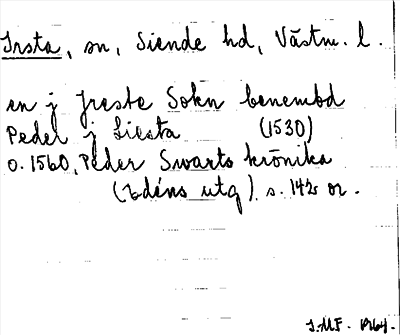 Irsta, sn, Siende hd, Västm. l.
en j Jreste Sokn benembd
Peder j Liesta (1530)
o. 1560, Peder Swarts krönika
(Edéns utg). s. 142 or.
J.M.F. 1964.